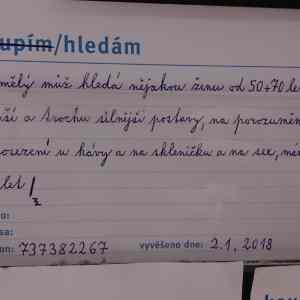 upím/hledám
mělý muž hledá nějakou ženu od 50+70 le
ší a trochu silnější postavy, na porozumě
osezení u kávy a na skleničku a na sex,
let
o:
sa:
on: 737382267 vyvěšeno dne: 2.1.2018